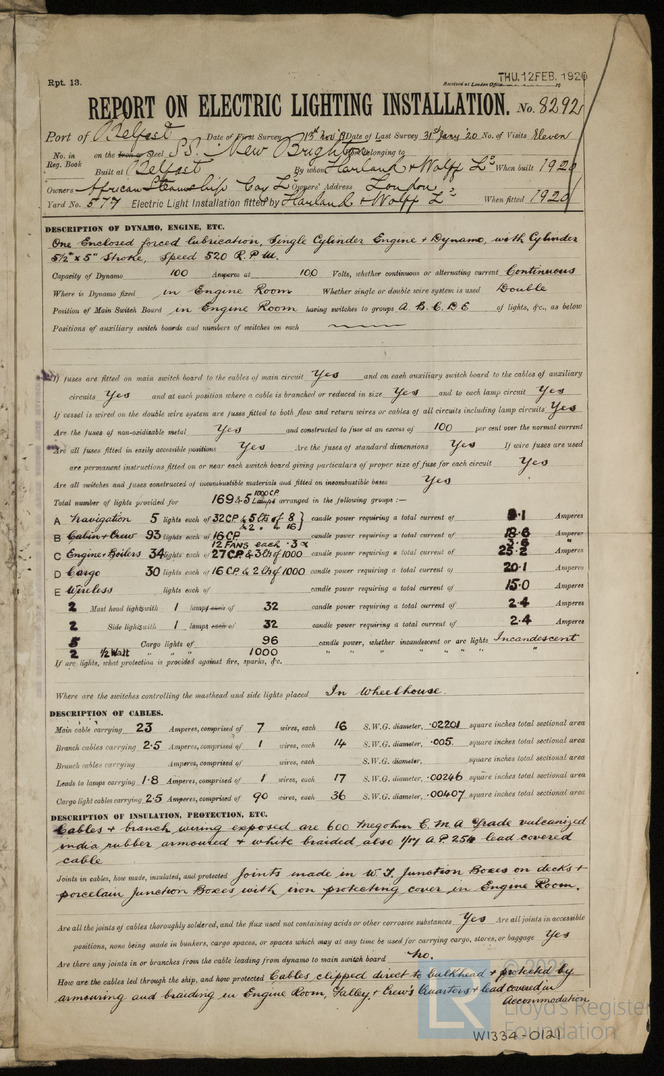 Rpt. 13.
Received at London Office THU. 12 FEB. 1920
REPORT ON ELECTRIC LIGHTING INSTALLATION. No. 8292
Port of Belfast Date of First Survey 13th Nov 19 Date of Last Survey 31st Jany '20 No. of Visits Eleven
No. in Reg. Book on the Iron or Steel S.S. New Brighton belonging to
Built at Belfast By whom Harland & Wolff Ld When built 1920
Owners African Steamship Coy Ld Owners' Address London
Yard No. 577 Electric Light Installation fitted by Harland & Wolff Ld When fitted 1920
DESCRIPTION OF DYNAMO, ENGINE, ETC.
One Enclosed forced lubrication, Single Cylinder Engine & Dynamo, with Cylinder
5½" x 5" Stroke, Speed 520 R.P.M.
Capacity of Dynamo 100 Amperes at 100 Volts, whether continuous or alternating current Continuous
Where is Dynamo fixed in Engine Room Whether single or double wire system is used Double
Position of Main Switch Board in Engine Room having switches to groups A. B. C. D E of lights, &c., as below
Positions of auxiliary switch boards and numbers of switches on each
If fuses are fitted on main switch board to the cables of main circuit Yes and on each auxiliary switch board to the cables of auxiliary
circuits Yes and at each position where a cable is branched or reduced in size Yes and to each lamp circuit Yes
If vessel is wired on the double wire system are fuses fitted to both flow and return wires or cables of all circuits including lamp circuits Yes
Are the fuses of non-oxidizable metal Yes and constructed to fuse at an excess of 100 per cent over the normal current
Are all fuses fitted in easily accessible positions Yes Are the fuses of standard dimensions Yes If wire fuses are used
are permanent instructions fitted on or near each switch board giving particulars of proper size of fuse for each circuit Yes
Are all switches and fuses constructed of incombustible materials and fitted on incombustible bases Yes
Total number of lights provided for 169 & 5 1000 CP Lamps arranged in the following groups :—
A Navigation 5 lights each of 32 CP & 5 Lts of 8 & 2 " " 16 candle power requiring a total current of Amperes
B Cabin & Crew 93 lights each of 16 CP candle power requiring a total current of 18.6 Amperes
12 FANS each .3 x 3.6 "
C Engine & Boilers 34 lights each of 27 CP & 3 Lts of 1000 candle power requiring a total current of 25.2 Amperes
D Cargo 30 lights each of 16 CP & 2 Lts of 1000 candle power requiring a total current of 20.1 Amperes
E Wireless lights each of candle power requiring a total current of 15.0 Amperes
2 Mast head lights with 1 lamps each of 32 candle power requiring a total current of 2.4 Amperes
2 Side lights with 1 lamps each of 32 candle power requiring a total current of 2.4 Amperes
5 Cargo lights of 96 candle power, whether incandescent or arc lights Incandescent
2 ½ Watt " " " 1000 " " " " " " "
If arc lights, what protection is provided against fire, sparks, &c.
Where are the switches controlling the masthead and side lights placed In Wheelhouse.
DESCRIPTION OF CABLES.
Main cable carrying 23 Amperes, comprised of 7 wires, each 16 S.W.G. diameter, .02201 square inches total sectional area
Branch cables carrying 2.5 Amperes, comprised of 1 wires, each 14 S.W.G. diameter, .005 square inches total sectional area
Branch cables carrying Amperes, comprised of wires, each S.W.G. diameter, square inches total sectional area
Leads to lamps carrying 1.8 Amperes, comprised of 1 wires, each 17 S.W.G. diameter, .00246 square inches total sectional area
Cargo light cables carrying 2.5 Amperes, comprised of 90 wires, each 36 S.W.G. diameter, .00407 square inches total sectional area
DESCRIPTION OF INSULATION, PROTECTION, ETC.
Cables & branch wiring exposed are 600 Megohm C.M.A Grade vulcanized
india rubber armoured & white braided also A.P. 254 lead covered
cable
Joints in cables, how made, insulated, and protected Joints made in W.T. Junction Boxes on decks &
porcelain Junction Boxes with iron protecting cover in Engine Room.
Are all the joints of cables thoroughly soldered, and the flux used not containing acids or other corrosive substances Yes Are all joints in accessible
positions, none being made in bunkers, cargo spaces, or spaces which may at any time be used for carrying cargo, stores, or baggage Yes
Are there any joints in or branches from the cable leading from dynamo to main switch board No.
How are the cables led through the ship, and how protected Cables clipped direct to bulkhead & protected by
armouring and braiding in Engine Room, Galley, & Crew's Quarters & lead covered in
Accommodation
© 2021
Lloyd's Register
Foundation
W1334-0121